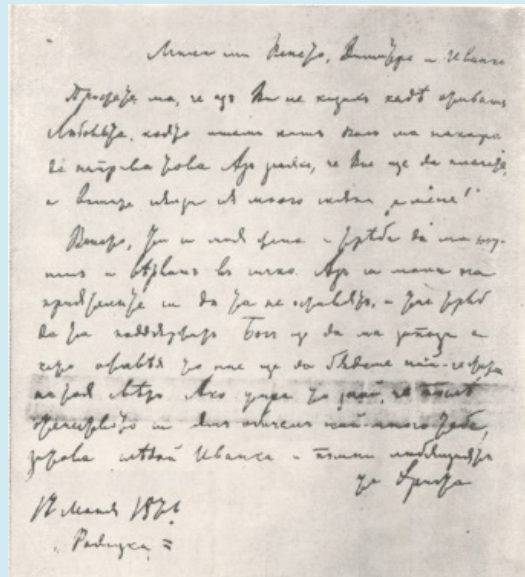 Мила ми Венето, Димитре и Иванке
Простете ма, че азъ Ви не казахъ кадѣ отивамъ
Любовьта, която имамъ къмъ васъ ма накара
да направа това Азъ знаяхъ, че Вие ще да плачете,
а вашите сълзи са много скѫпи за мене!
Венето, ти си моя жена и трѣба да ма слу-
шашъ и вѣрвашъ въ сичко. Азъ са мола на
приятелите си да та не оставятъ, и тие трѣб
да та поддържатъ Богъ ще да ма запази а
като оживѣя то ние ще да бѫдеме най-честити
на тоя свѣтъ Ако умра то знай, че послѣ
отечеството си съмъ обичалъ най-много тебе,
затова гледай Иванка и помни любящиятъ
та Христа
17 Маия 1876
"Радецки" =